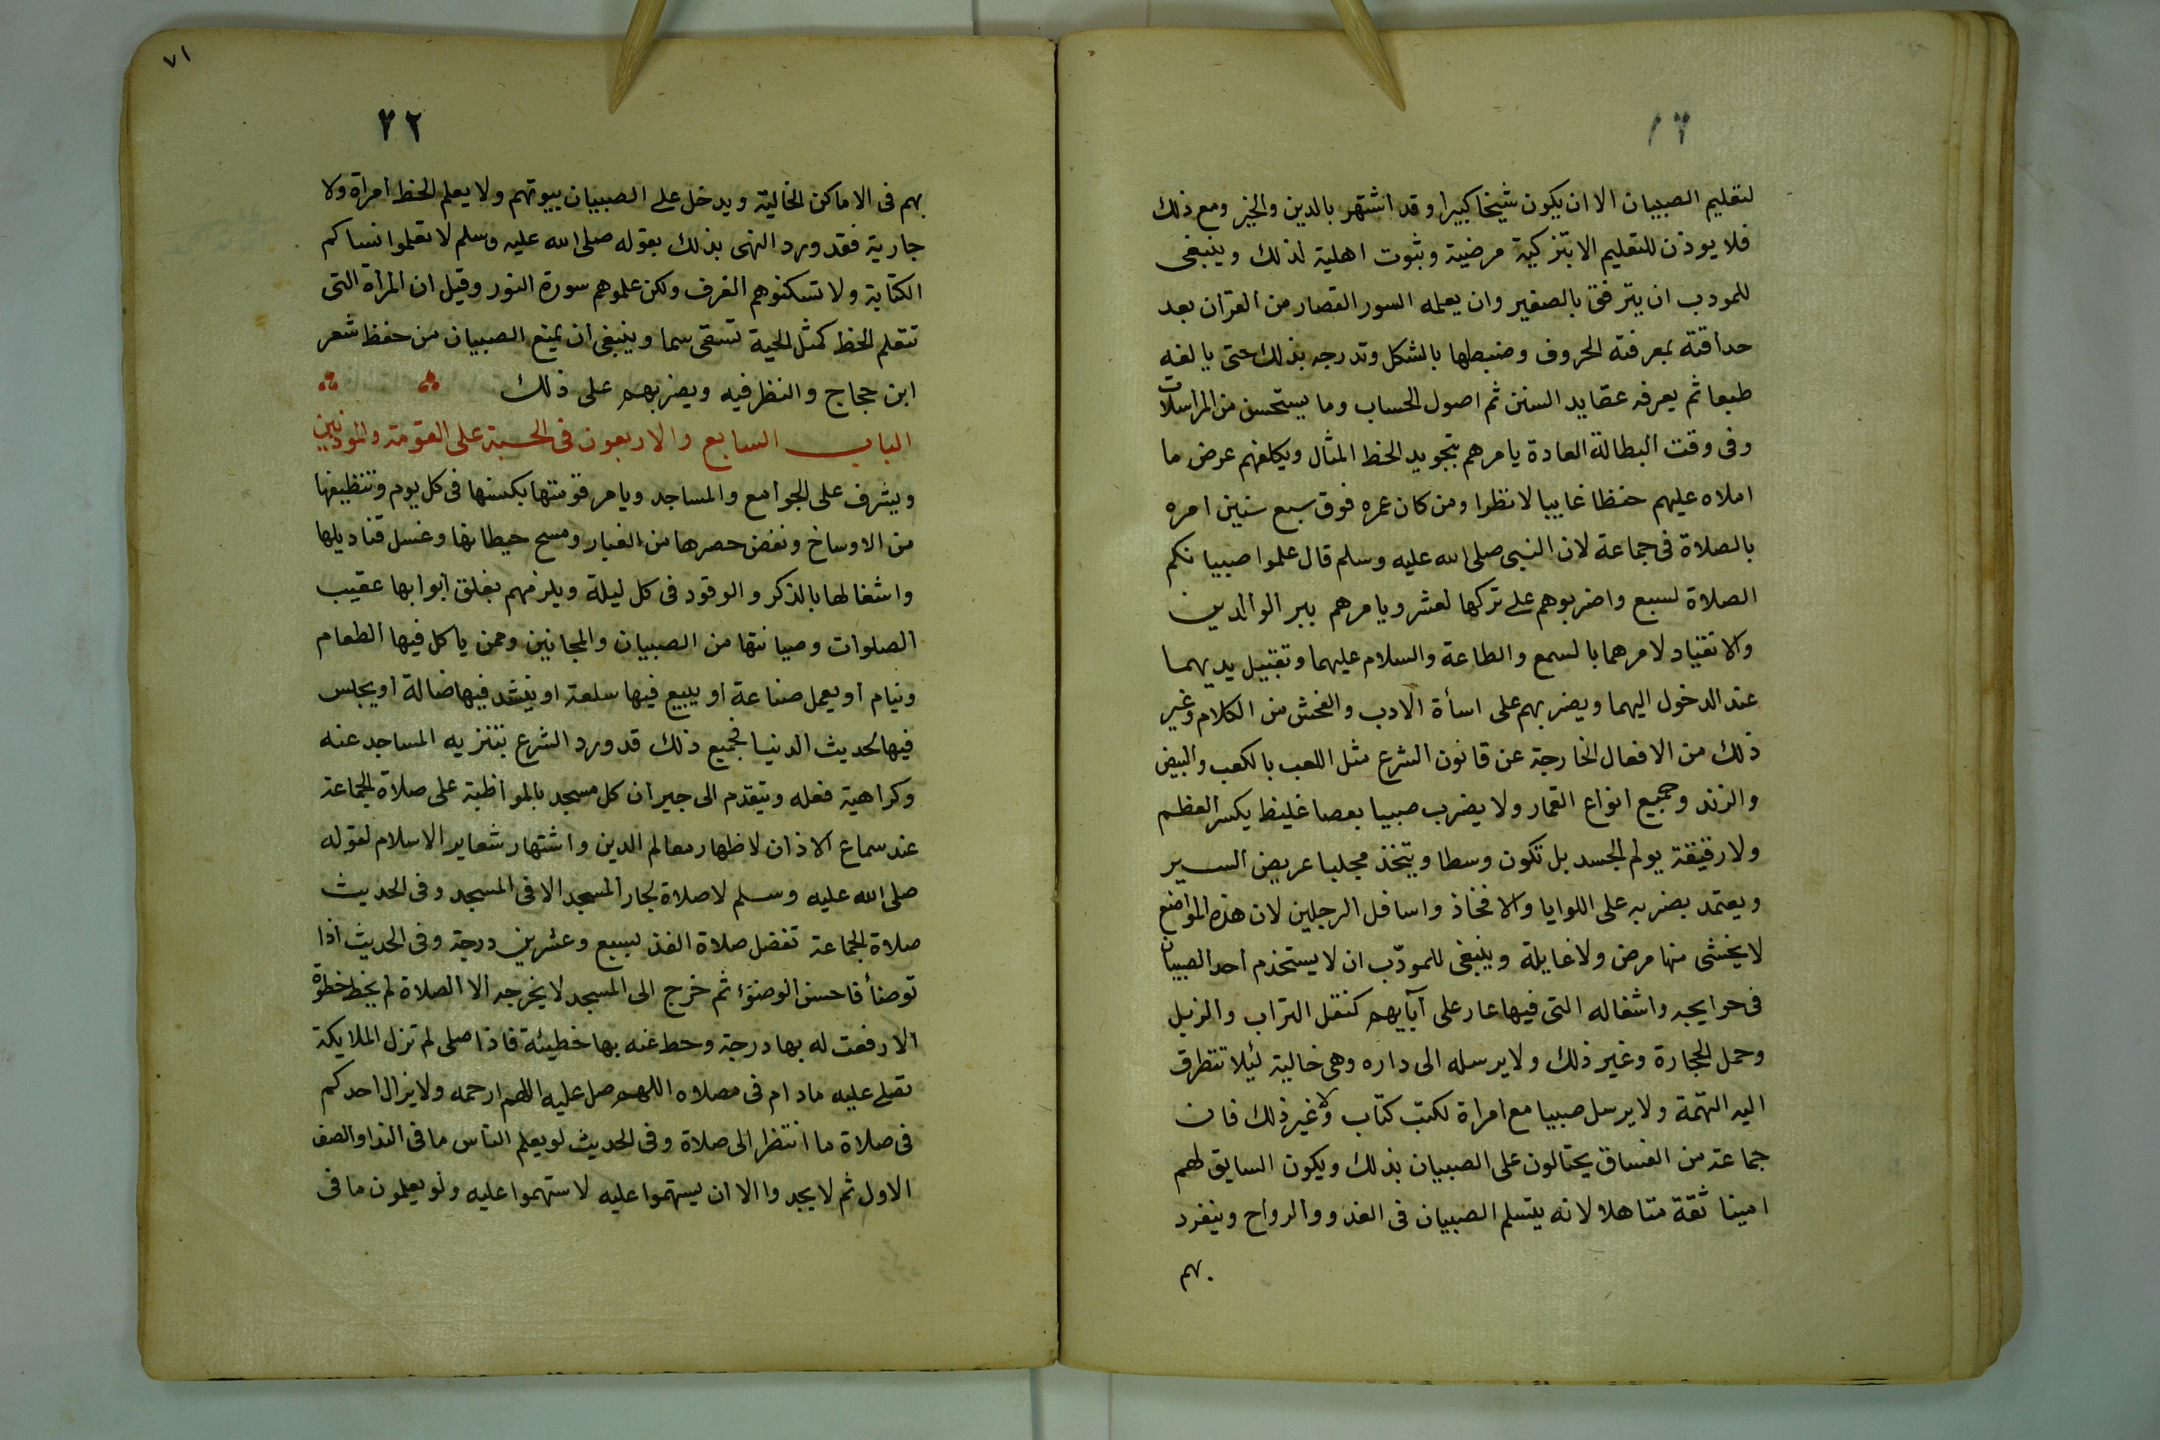 ١٧
لتعليم الصبيان الا ان يكون شيخا كبيرا وقد اشتهر بالدين والخير ومع ذلك
فلا يوذن للتعليم الا بتزكية مرضية وثبوت اهلية لذلك وينبغى
للمودب ان يترفق بالصغير وان يعلمه السور القصار من القرآن بعد
حداقته بمعرفته الحروف وضبطها بالشكل وتدرجه بذلك حتى يالفه
طبعا ثم يعرفه عقايد السنن ثم اصول الحساب وما يستحسن من المراسلات
وفى وقت البطالة العادة يامرهم بتجويد الخط المثال ويكلفهم عرض ما
املاه عليهم حفظا غايبا لا نظرا ومن كان عمره فوق سبع سنين امره
بالصلاة فى جماعة لان النبى صلى الله عليه وسلم قال علموا صبيانكم
الصلاة لسبع واضربوهم على تركها لعشر ويامرهم ببر الوالدين
والانقياد لامرهما بالسمع والطاعة والسلام عليهما وتقبيل يديهما
عند الدخول اليهما ويضربهم على اسأة الادب والفحش من الكلام وغير
ذلك من الافعال الخارجة عن قانون الشرع مثل اللعب بالكعب والبيض
والنرد وجميع انواع القمار ولا يضرب صبيا بعصا غليظ يكسر العظم
ولا رقيقة يولم الجسد بل تكون وسطا ويتخذ مجلبا عريض السير
ويعتمد بضربه على اللوايا والافخاذ واسافل الرجلين لان هذه المواضع
لا يخشى منها مرض ولا غايلة وينبغى للمودّب ان لا يستخدم احد الصبيان
فى حوايجه واشغاله التى فيها عار على آبآيهم كنقل التراب والزبل
وحمل الحجارة وغير ذلك ولا يرسله الى داره وهى خالية لئلا تتطرق
اليه التهمة ولا يرسل صبيا مع امراة لكتب كتاب ولا غير ذلك فان
جماعة من الفساق يحتالون على الصبيان بذلك ويكون السايق لهم
امينا ثقة متاهلا لانه يتسلم الصبيان فى الغدو والرواح وينفرد
بهم
٧١
٧٢
بهم فى الاماكن الخالية ويدخل على الصبيان بيوتهم ولا يعلم الخط امراة ولا
جارية فقد ورد النهى بذلك بقوله صلى الله عليه وسلم لا تعلموا نساكم
الكتابة ولا تسكنوهم الغرف ولكن علموهم سورة النور وقيل ان المراة التى
تتعلم الخط كمثل الحية تسقى سما وينبغى ان يمنع الصبيان من حفظ شعر
ابن حجاج والنظر فيه ويضربهم على ذلك
الباب السابع والاربعون فى الحسبة على القومة والموذنين
ويشرف على الجوامع والمساجد ويامر قومتها بكنسها فى كل يوم وتنظيفها
من الاوساخ ونفض حصرها من الغبار ومسح حيطانها وغسل قناديلها
واشغالها بالذكر والوقود فى كل ليلة ويلزمهم بغلق ابوابها عقيب
الصلوات وصيانتها من الصبيان والمجانين وممن ياكل فيها الطعام
وينام او يعمل صناعة او يبيع فيها سلعة او ينشد فيها ضالة او يجلس
فيها لحديث الدنيا فجميع ذلك قد ورد الشرع بتنزيه المساجد عنه
وكراهية فعله ويتقدم الى جيران كل مسجد بالمواظبة على صلاة الجماعة
عند سماع الاذان لاظهار معالم الدين واشتهار شعاير الاسلام لقوله
صلى الله عليه وسلم لا صلاة لجار المسجد الا فى المسجد وفى الحديث
صلاة الجماعة تفضل صلاة الفذ بسبع وعشرين درجة وفى الحديث اذا
توضأ فاحسن الوضوء ثم خرج الى المسجد لا يخرجه الا الصلاة لم يخط خطوة
الا رفعت له بها درجة وحط عنه بها خطيئة فاذا صلى لم تزل الملايكة
تصلى عليه مادام فى مصلاه اللهم صل عليه اللهم ارحمه ولا يزال احدكم
فى صلاة ما انتظر الى صلاة وفى الحديث لو يعلم الناس ما فى الندا والصف
الاول ثم لا يجدوا الا ان يستهموا عليه لاستهموا عليه ولو يعلمون ما فى